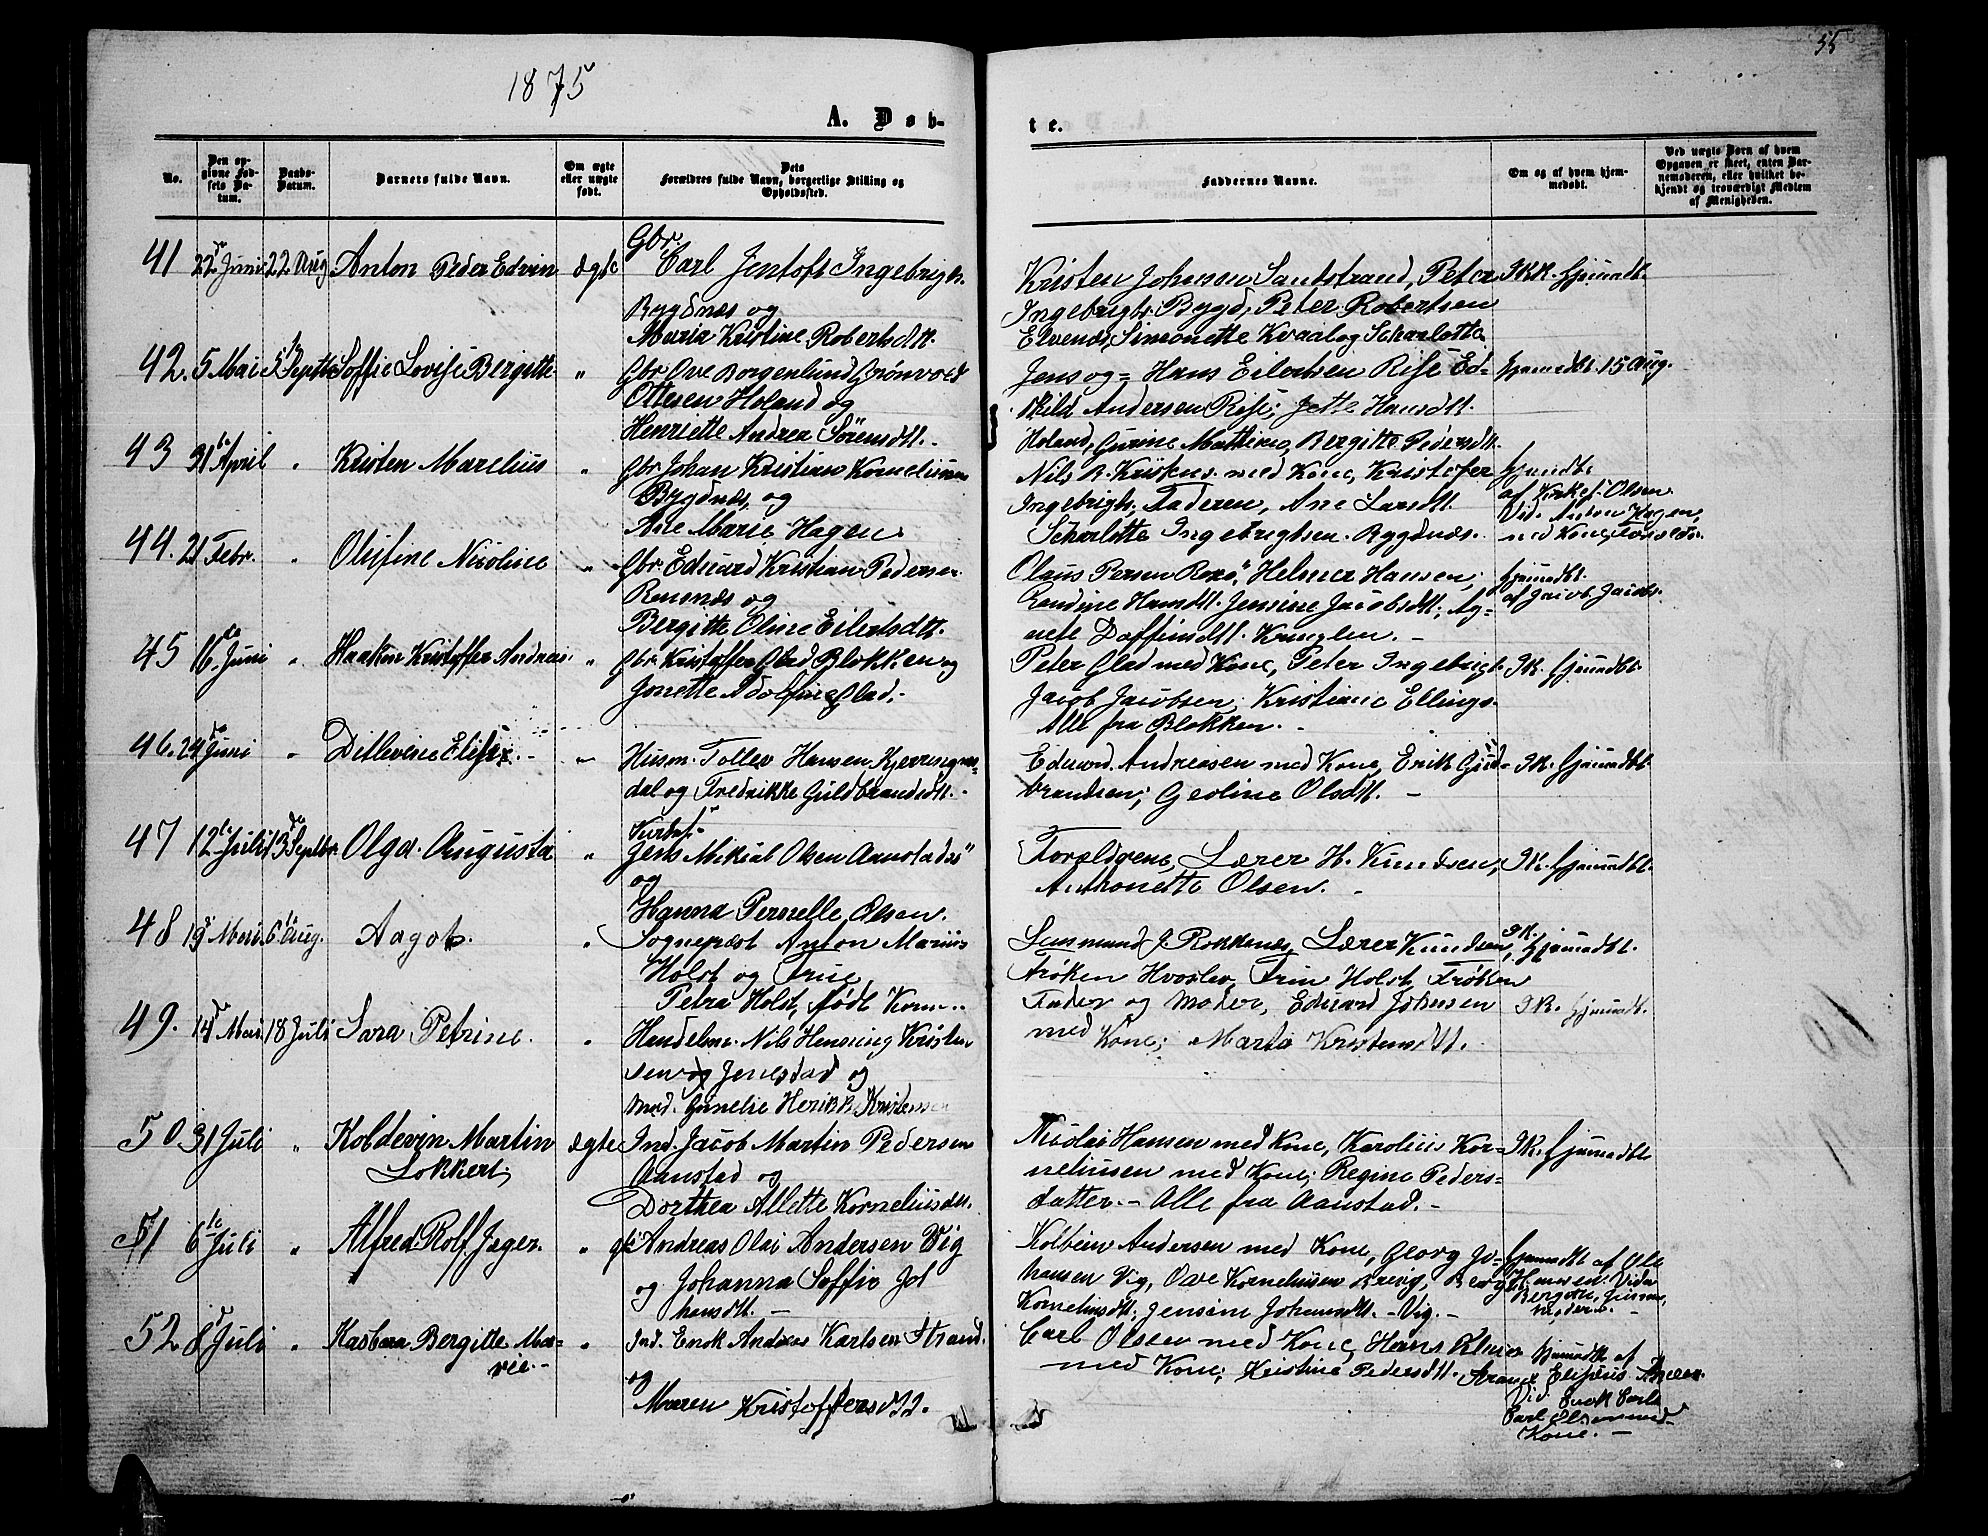 55
1875
A. Døb-
te.
No.
Den opgivne Fødsels Datum.
Daabs-Datum.
Barnets fulde Navn.
Om ægte eller uægte født.
Dets Forældres fulde Navn, borgerlige Stilling og Opholdssted.
Faddernes Navne.
Om og af hvem hjemmedøbt.
Ved uægte Børn af hvem Opgaven er skeet, enten Barnemoderen, eller hvilket bekjendt og troværdigt Medlem af Menigheden.
41 22 Juni 22 Aug Anton Peder Edvin ægte Gbr. Carl Jentoft Ingebrigts.
Bygdnæs og
Maria Kristine Robertsdtt.
Kristen Johnsen Sandstrand, Peter
Ingebrigts. Bygd, Peter Robertsen
Elvenæs, Simonette Kvaal og Scharlotte
IK. hjemdbt.
42. 5 Mai 5 Septb Soffie Lovise Bergitte " Gbr Ove Borgenlund Grönvold
Ottesen Holand og
Henriette Andrea Sörensdtt.
Jens og Hans Eilertsen Rise Ed-
Andersen Rise, Jette Hansdtt.
Holand, Gurine Mathine, Bergitte Pedersdtt.
hjemdbt. 15 Aug.
43 31 April " Kristen Marelius " Gbr Johan Kristian Korneliusen
Bygdnæs, og
Ane Marie Hagen.
Nils B. Kristens. med Kone, Kristofer
Ingebrigts, Faderen, Ane Larsdtt.
Scharlotte Ingebrigtsen. Bygdnæs.
hjemdbt
af Olsen.
Vid. Anton Hagen,
med Kone,
44. 21 Febr. " Olufine Nicoline " Gbr Eduard Kristian Pedersen
og
Bergitte Oline Eilertsdtt.
Olaus Persen Helmer Hansen,
Hansdtt. Jensine Jacobsdtt, Ag-
nete
hjemdbt.
af Jacob Jacobs.
45 16 Juni " Haakon Kristoffer Andreas " Gbr Kristoffer Olad Blokken og
Jonette Adolfine Olad.
Peter Olad med Kone, Peter Ingebrigt.
Jacob Jacobsen, Kristiane Ellings.
Alle fra Blokken.
IK. hjemdbt.
46. 24 Juni " Ditlevine Elise. " Husm. Tollev Hansen Kjerringnæs-
dal og Fredrikke Guldbrandsdtt.
Eduard Andreasen med Kone, Erik Guld-
brandsen, Geoline Olsdtt.
IK. hjemdbt.
47 12 Juli 13 Septbr Olga Augusta "
Jens Mekial Olsen Aanstad
og
Hanna Pernelle Olsen.
Forældrene, Lærer H. Knudsen,
Anthonette Olsen.
IK. hjemdbt.
48 19 Mai 6 Aug. Aagot. " Sogneprest Anton Marius
Holst og Frue
Petra Holst, født
Lensmand J Rokkenæs, Lærer Knudsen,
Frøken Hvoslev, Fru Holst, Frøken
IK. hjemdbt.
49. 14 Mai 18 Juli Sara Petrine. " Handelsm. Nils Henning Kristen
sen og Jenestad og
Mad. Gunelie Kristensen
Fader og Moder, Eduard Johnsen
med Kone, Marta Kristensdtt.
IK. hjemdbt.
50 31 Juli " Koldevin Martin ægte Ind. Jacob Martin Pedersen
Lokkert, Aanstad og
Dorthea Allette Korneliusdtt.
Nicolai Hansen med Kone, Karolius Kor-
neliussen med Kone, Regine Peders-
datter. - Alle fra Aanstad. -
IK. hjemdbt
51 6 Juli " Alfred Rolf Jager. " Andreas Olai Andersen Vig
og Johanna Soffie Jo
hansdtt. -
Kolbein Andersen med Kone, Georg Jo-
hansen Vig, Ove Korneliussen Brevig,
Korneliusdtt. Jensine Johansdtt. - Vig. -
hjemdbt af Ole
Hansen. Vidn
52 8 Juli " Kasbara Bergitte Ma- " Ind. Enok Andreas Karlsen Strand.
rie. - og
Maren Kristoffersdtt.
Carl Olsen med Kone,
med Kone, Kristine Pedersdtt. Strand
hjemdbt af
Vid. Enok Carls
Kone. -